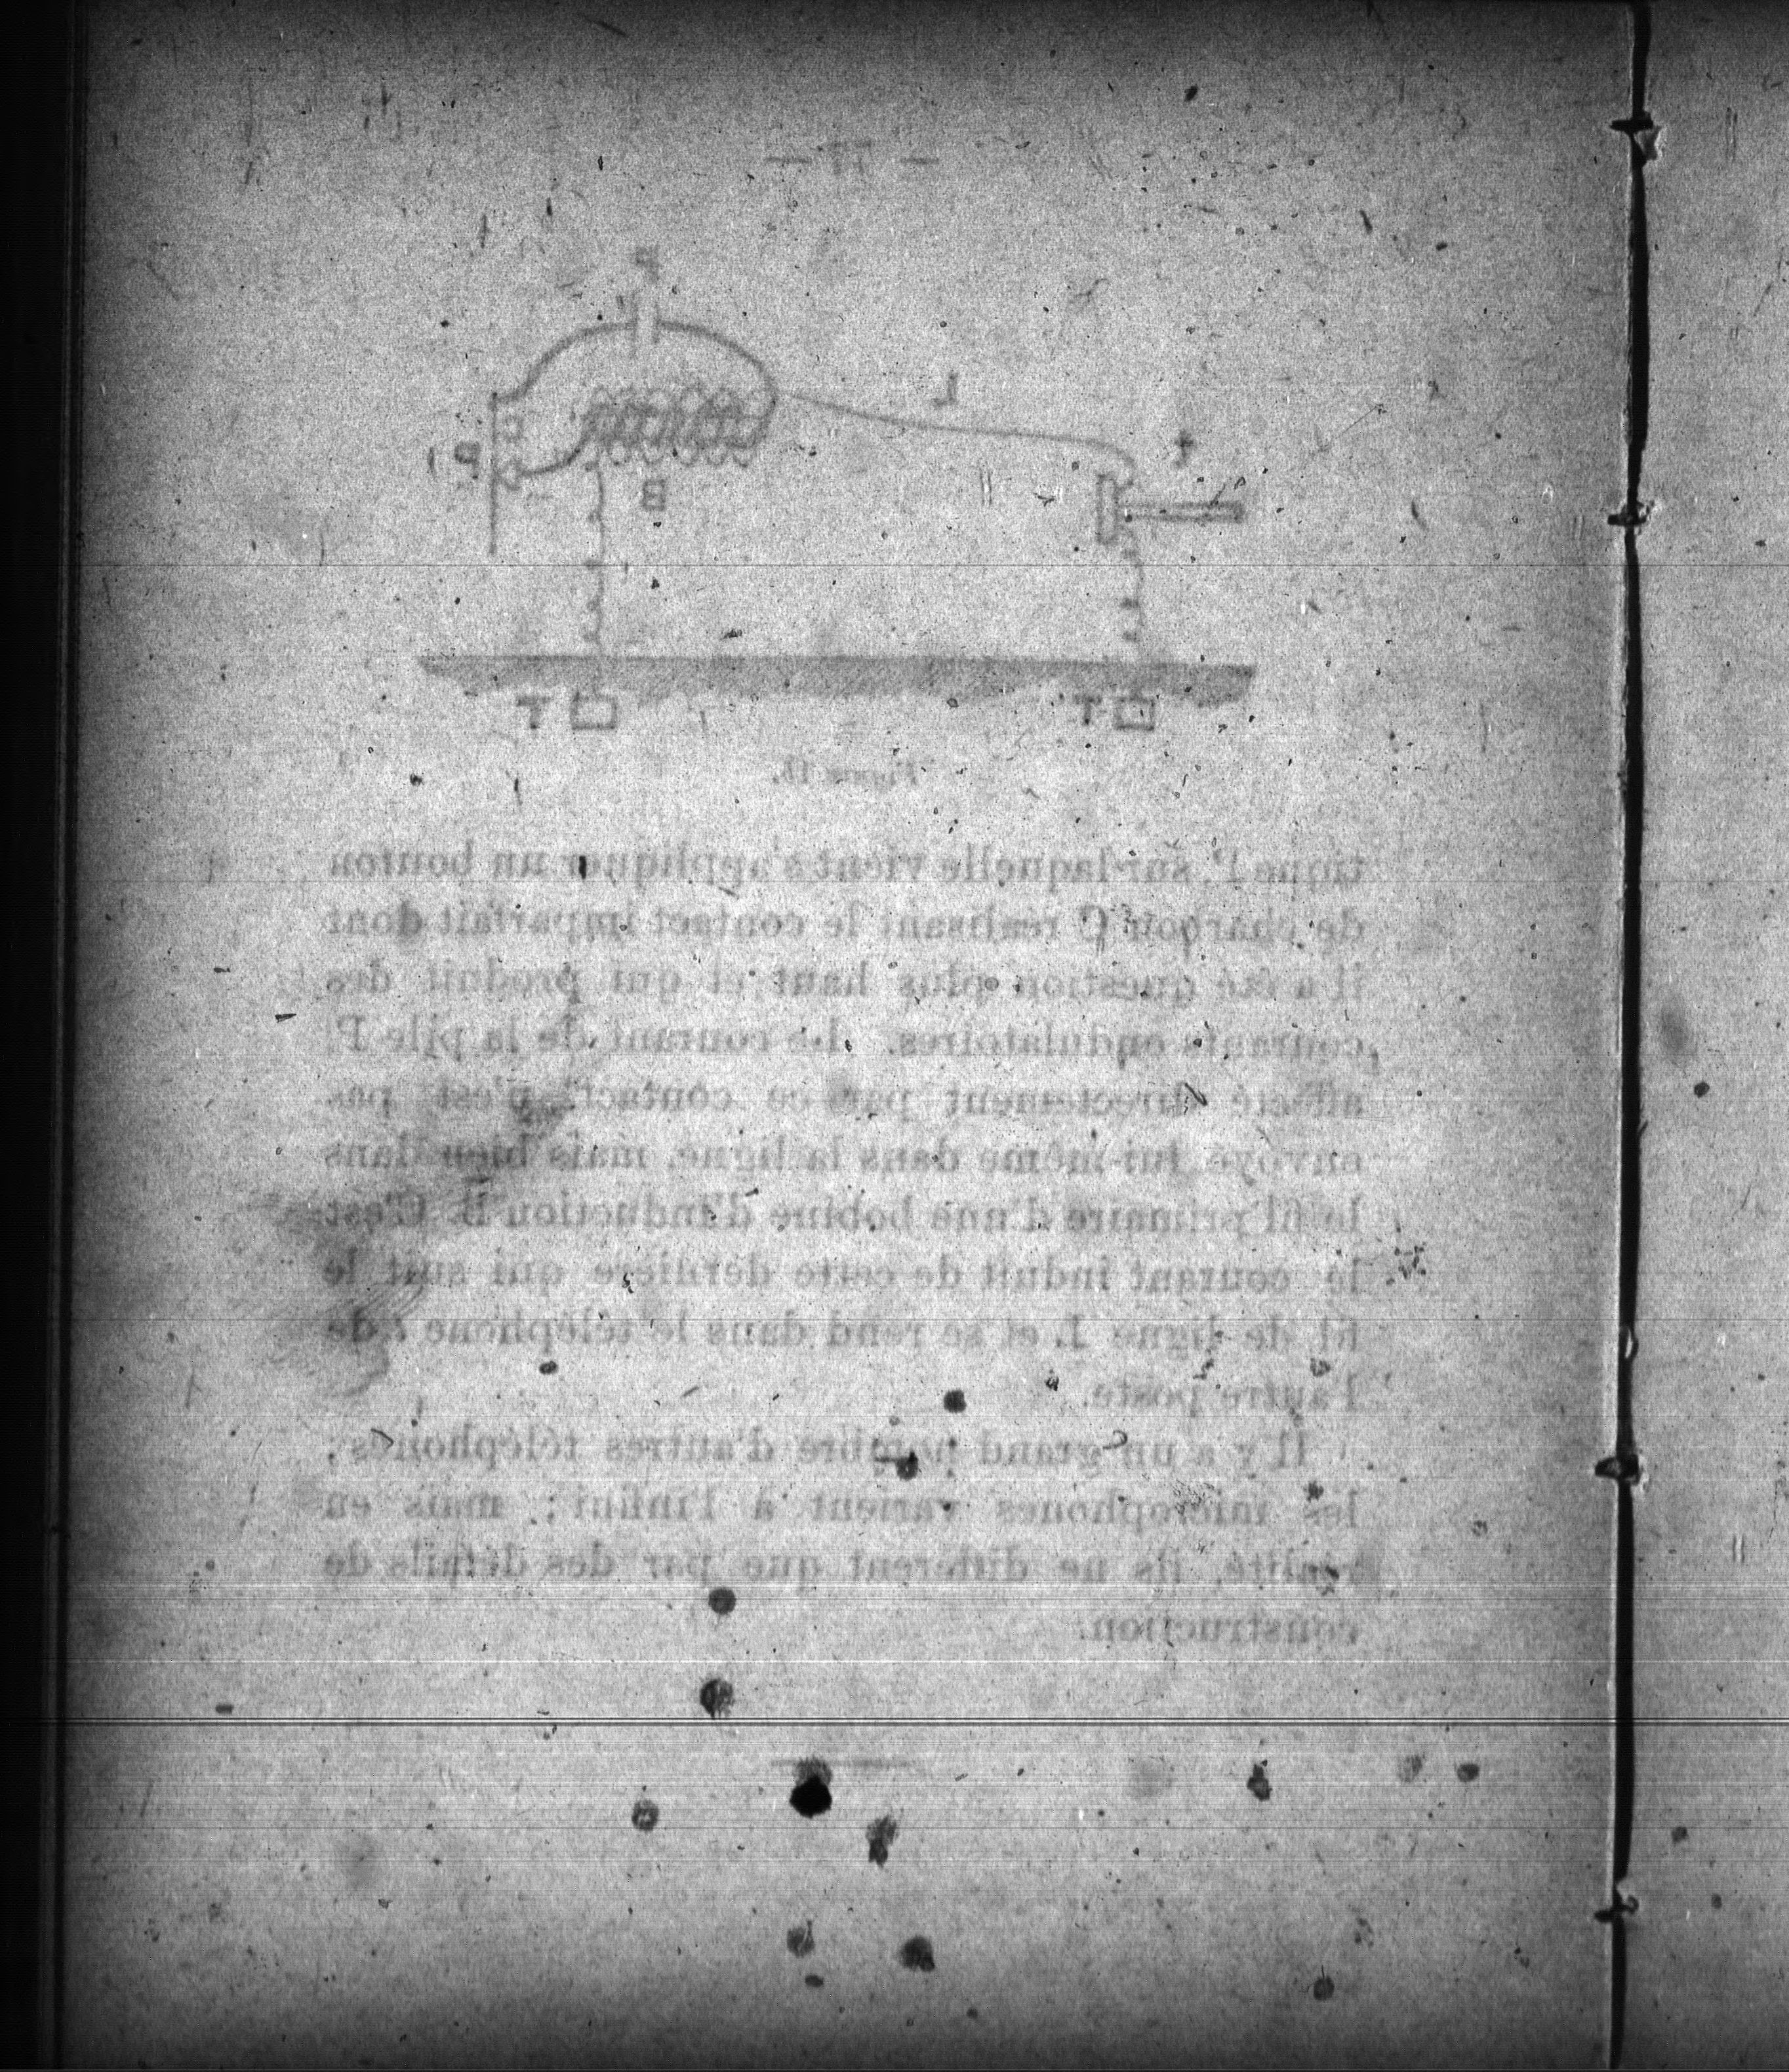 — 77 —
P
L
t
P'
B
T
T
tique P' sur laquelle vient s'appliquer un bouton
de charbon C réalisant le contact imparfait dont
il a été question plus haut et qui produit des
courants ondulatoires. Le courant de la pile P
directement par ce contact n'est pas
envoyé lui-même dans la ligne, mais bien dans
le fil primaire d'une bobine d'induction B. C'est
le courant induit de cette dernière qui suit le
fil de ligne L et se rend dans le téléphone t de
l'autre poste.
Il y a un grand nombre d'autres téléphones ;
les microphones varient à l'infini ; mais en
réalité, ils ne diffèrent que par des détails de
construction.